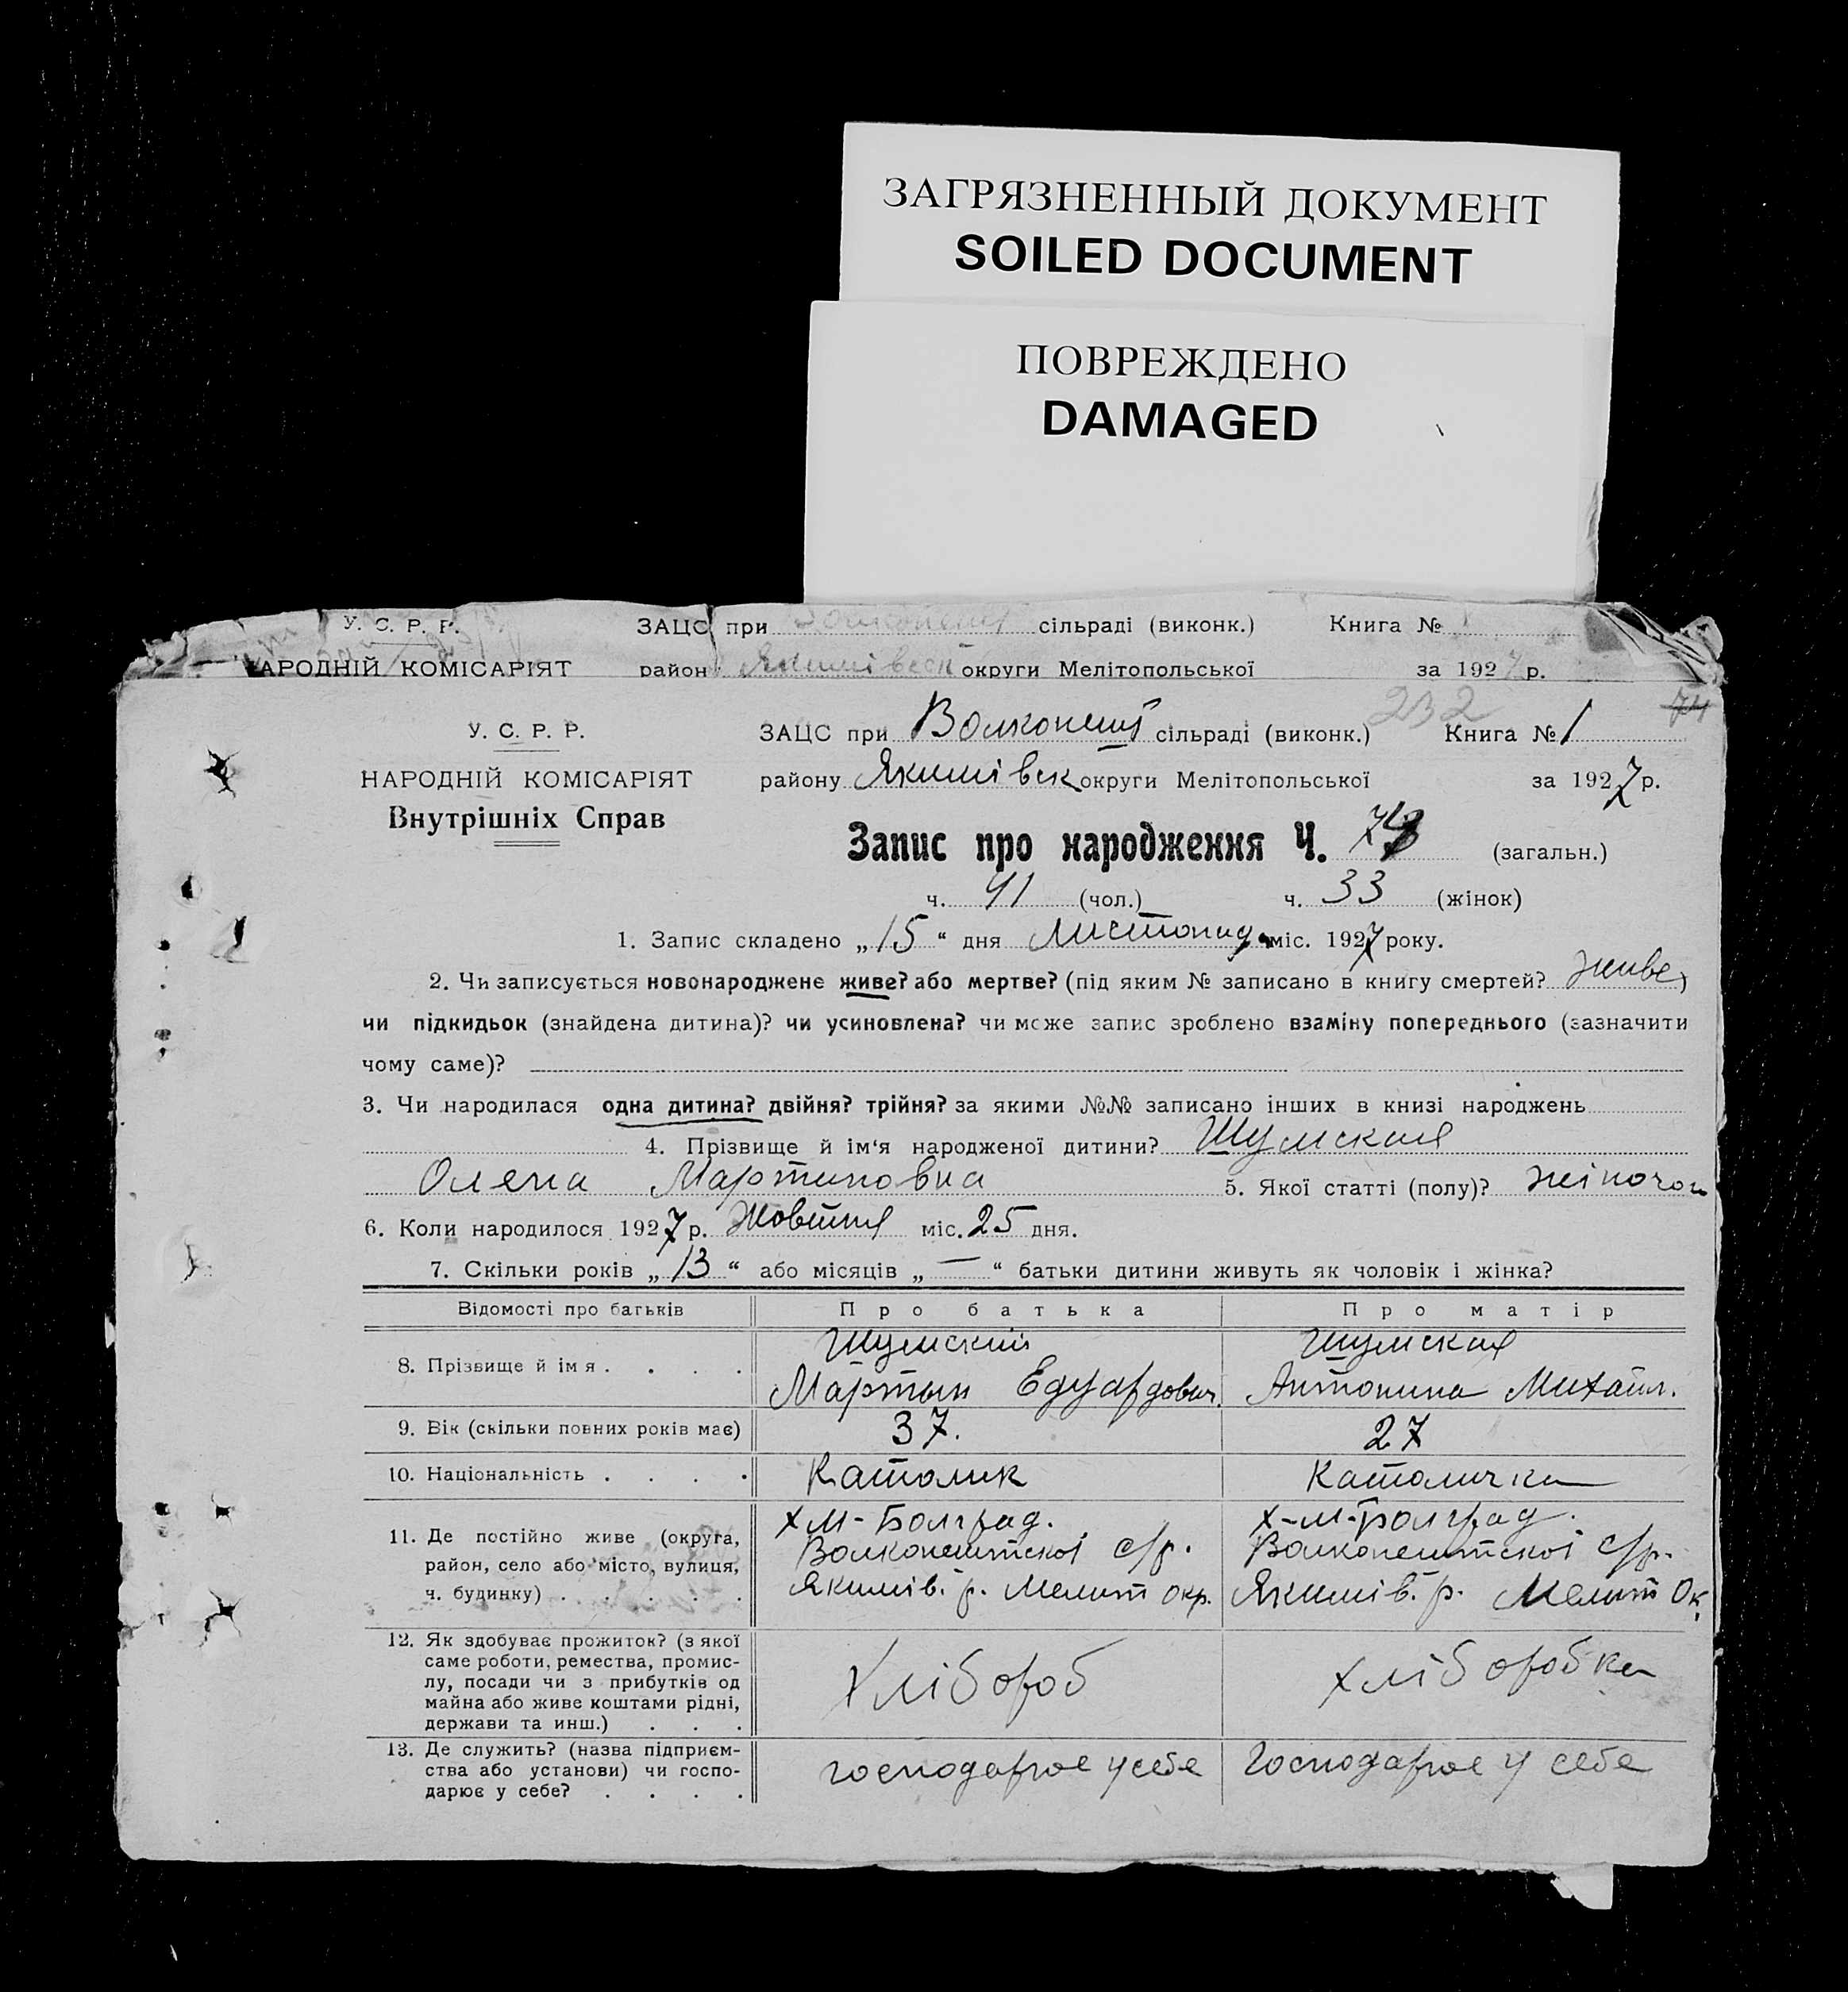 ЗАГРЯЗНЕННЫЙ ДОКУМЕНТ
SOILED DOCUMENT
ПОВРЕЖДЕНО
DAMAGED
У. С. Р. Р. ЗАЦС при сільраді (виконк.) Книга №
АРОДНІЙ КОМІСАРІЯТ район Якимівськ округи Мелітопольської за 1927 р.
232 74
У. С. Р. Р. ЗАЦС при Волконешт сільраді (виконк.) Книга № 1
НАРОДНІЙ КОМІСАРІЯТ району Якимівск округи Мелітопольської за 1927 р.
Внутрішніх Справ
Запис про народження Ч. 74 (загальн.)
ч. 41 (чол.) ч. 33 (жінок)
1. Запис складено „15“ дня Листопада міс. 1927 року.
2. Чи записується новонароджене живе? або мертве? (під яким № записано в книгу смертей? живе)
чи підкидьок (знайдена дитина)? чи усиновлена? чи може запис зроблено взаміну попереднього (зазначити
чому саме)?
3. Чи народилася одна дитина? двійня? трійня? за якими №№ записано інших в книзі народжень
4. Прізвище й ім‘я народженої дитини? Шумская
Олена Мартиновна 5. Якої статті (полу)? жіночої
6. Коли народилося 1927 р. Жовтня міс. 25 дня.
7. Скільки років „13“ або місяців „—“ батьки дитини живуть як чоловік і жінка?
Відомості про батьків Про батька Про матір
8. Прізвище й імя . . . . Шумский Шумская
Мартын Едуардович Антонина Михайл.
9. Вік (скільки повних років має) 37. 27
10. Національність . . . . Католик Католичка
11. Де постійно живе (округа, хм-Болград. х-м-Болград.
район, село або місто, вулиця, Волконештскоі с/р. Волконештскоі с/р.
ч. будинку) . . . . . Якимів. р. Мелит окр. Якимів. р. Мелит Ок.
12. Як здобуває прожиток? (з якої
саме роботи, ремества, промис-
лу, посади чи з прибутків од Хлібороб хліборобка
майна або живе коштами рідні,
держави та инш.) . . .
13. Де служить? (назва підприєм-
ства або установи) чи госпо- господарює у себе Господарює у себе
дарює у себе? . . . .